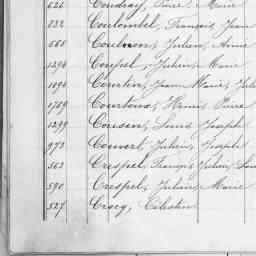 626 Coudray, Pierre Marie
232 Coulombel, François Jean
560 Coulmon, Julien, Anne
1294 Coupel, Julien, Marie
1094 Courtin, Jean Marie, Jul
1789 Courtoux, Henri Pierre
1299 Cousin, Louis Joseph
973 Couvert, Julien, Joseph
563 Crespel, François Julien, Lou
590 Crespel, Julien, Marie
527 Crocq, Célestin